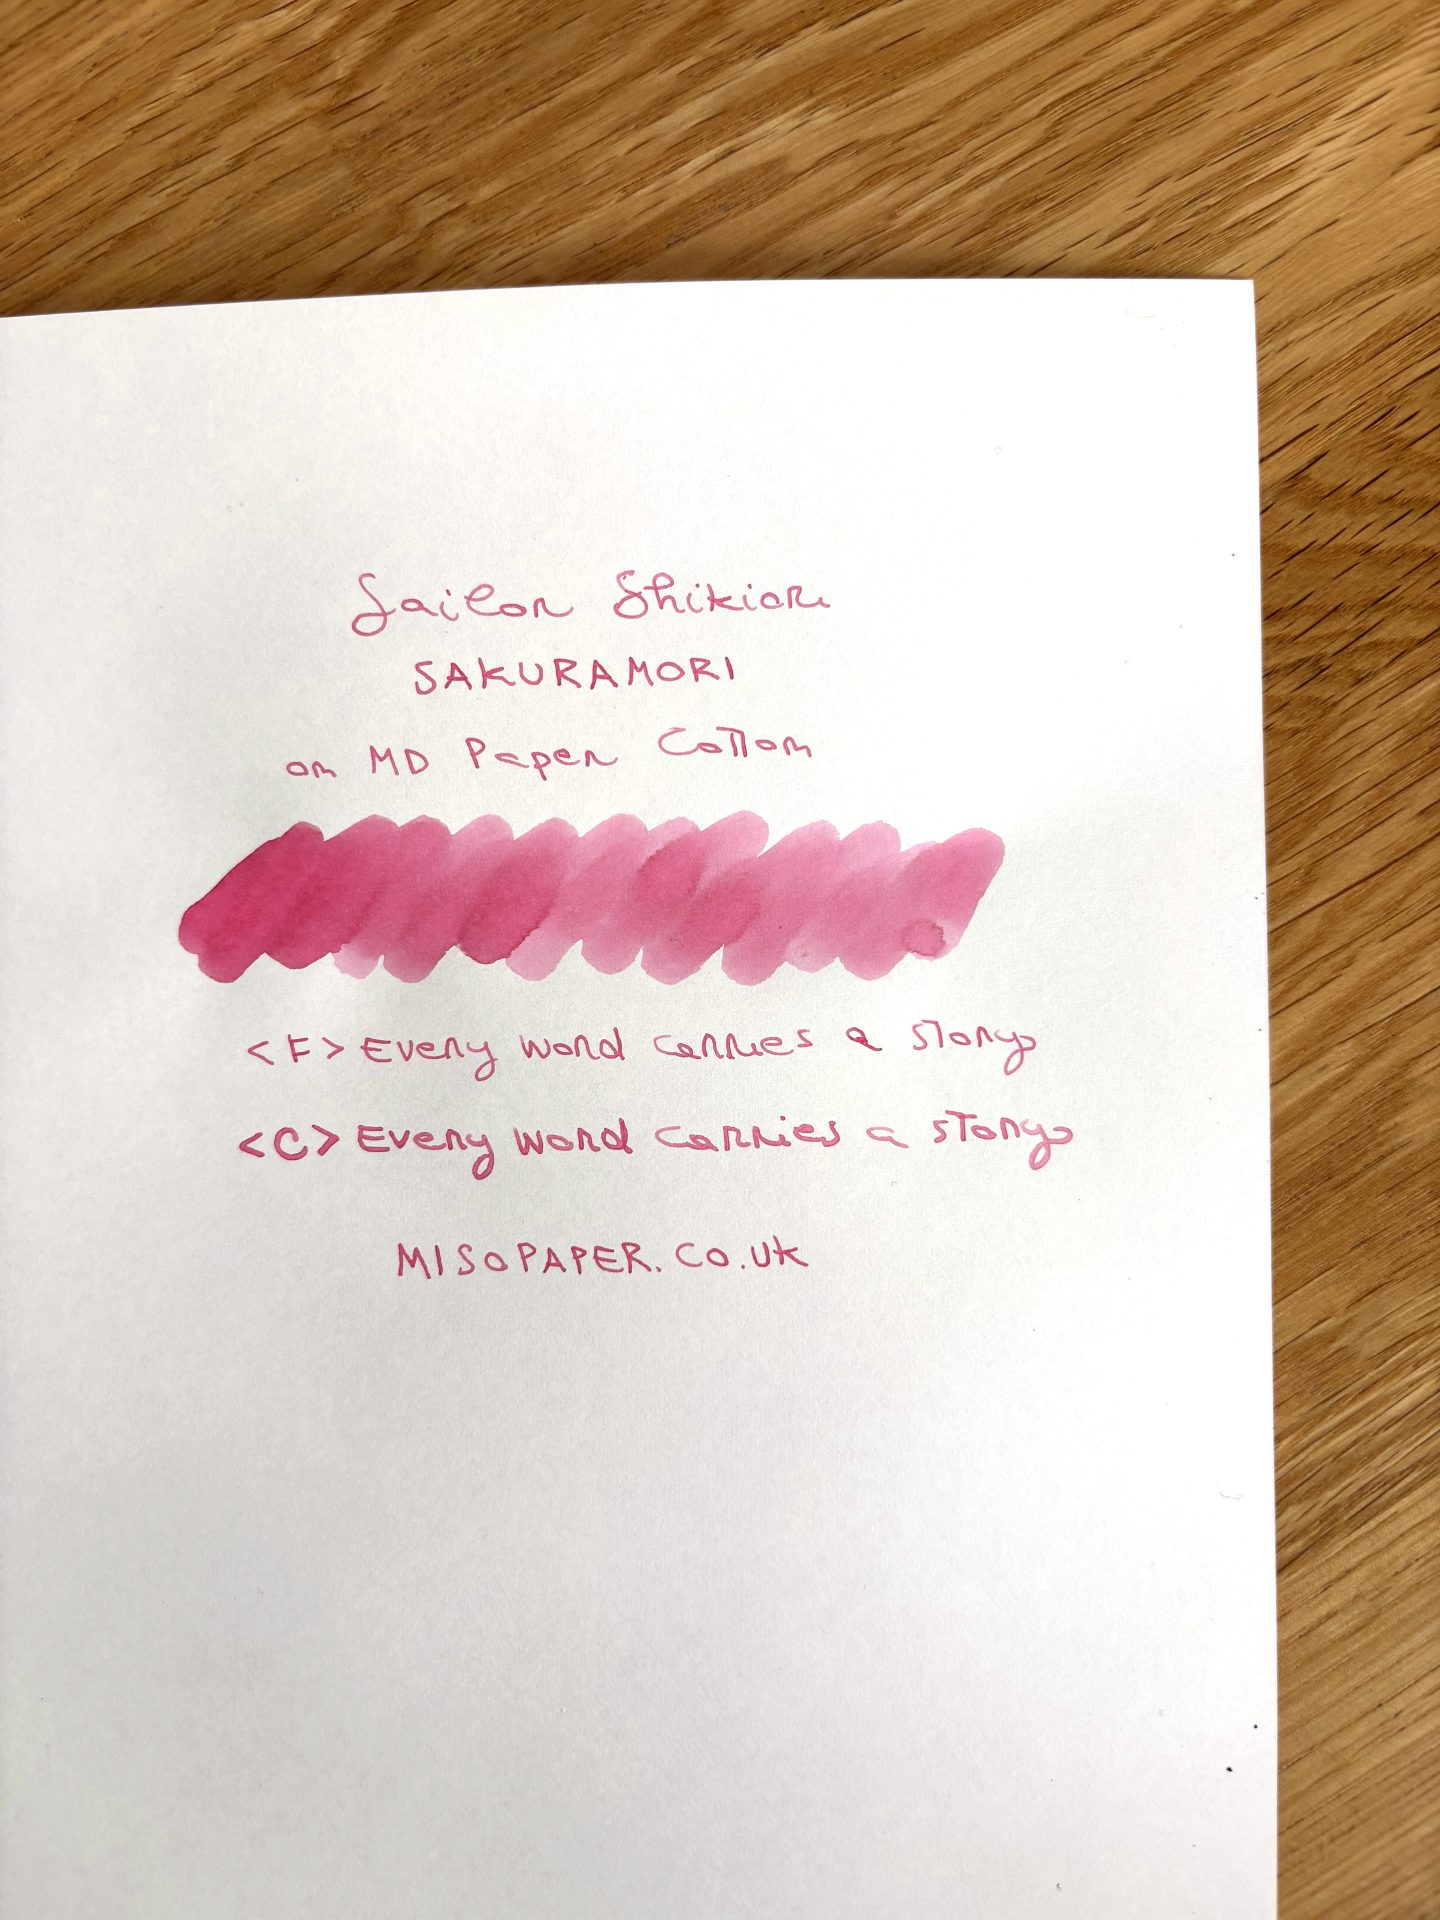 Sailor Shikiori
SAKURAMORI
on MD Paper Cotton
<F> Every word carries a story
<C> Every word carries a story
MISOPAPER.CO.UK